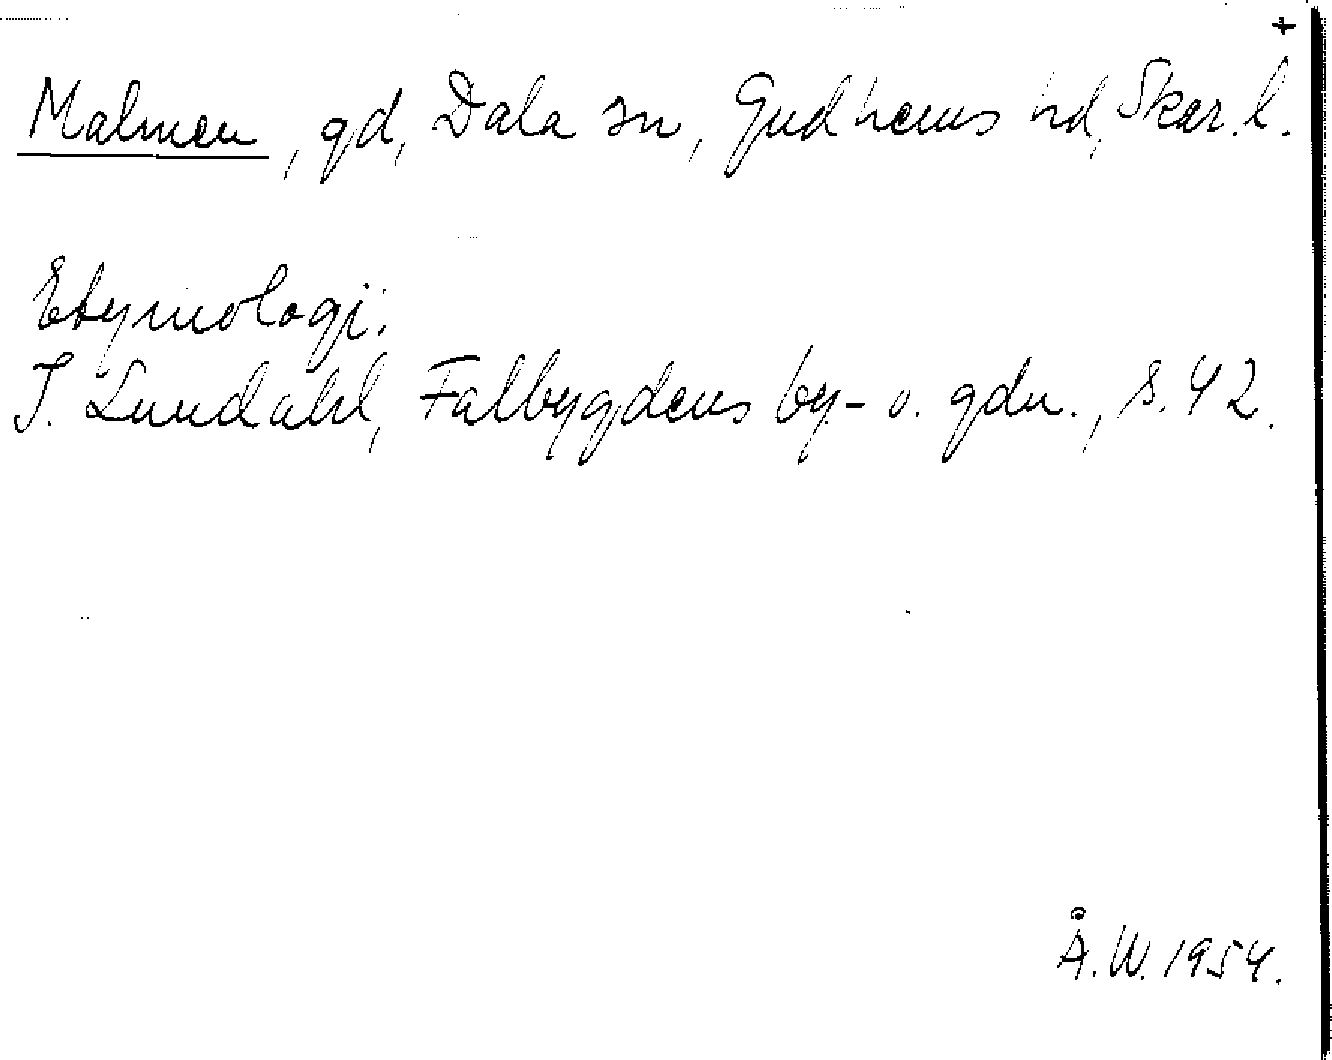 +
Malmen, gd, Dala sn, Gudhems hd, Skar. l.
Etymologi:
I. Lundahl, Falbygdens by- o. gdn., s. 42.
Å.W. 1954.